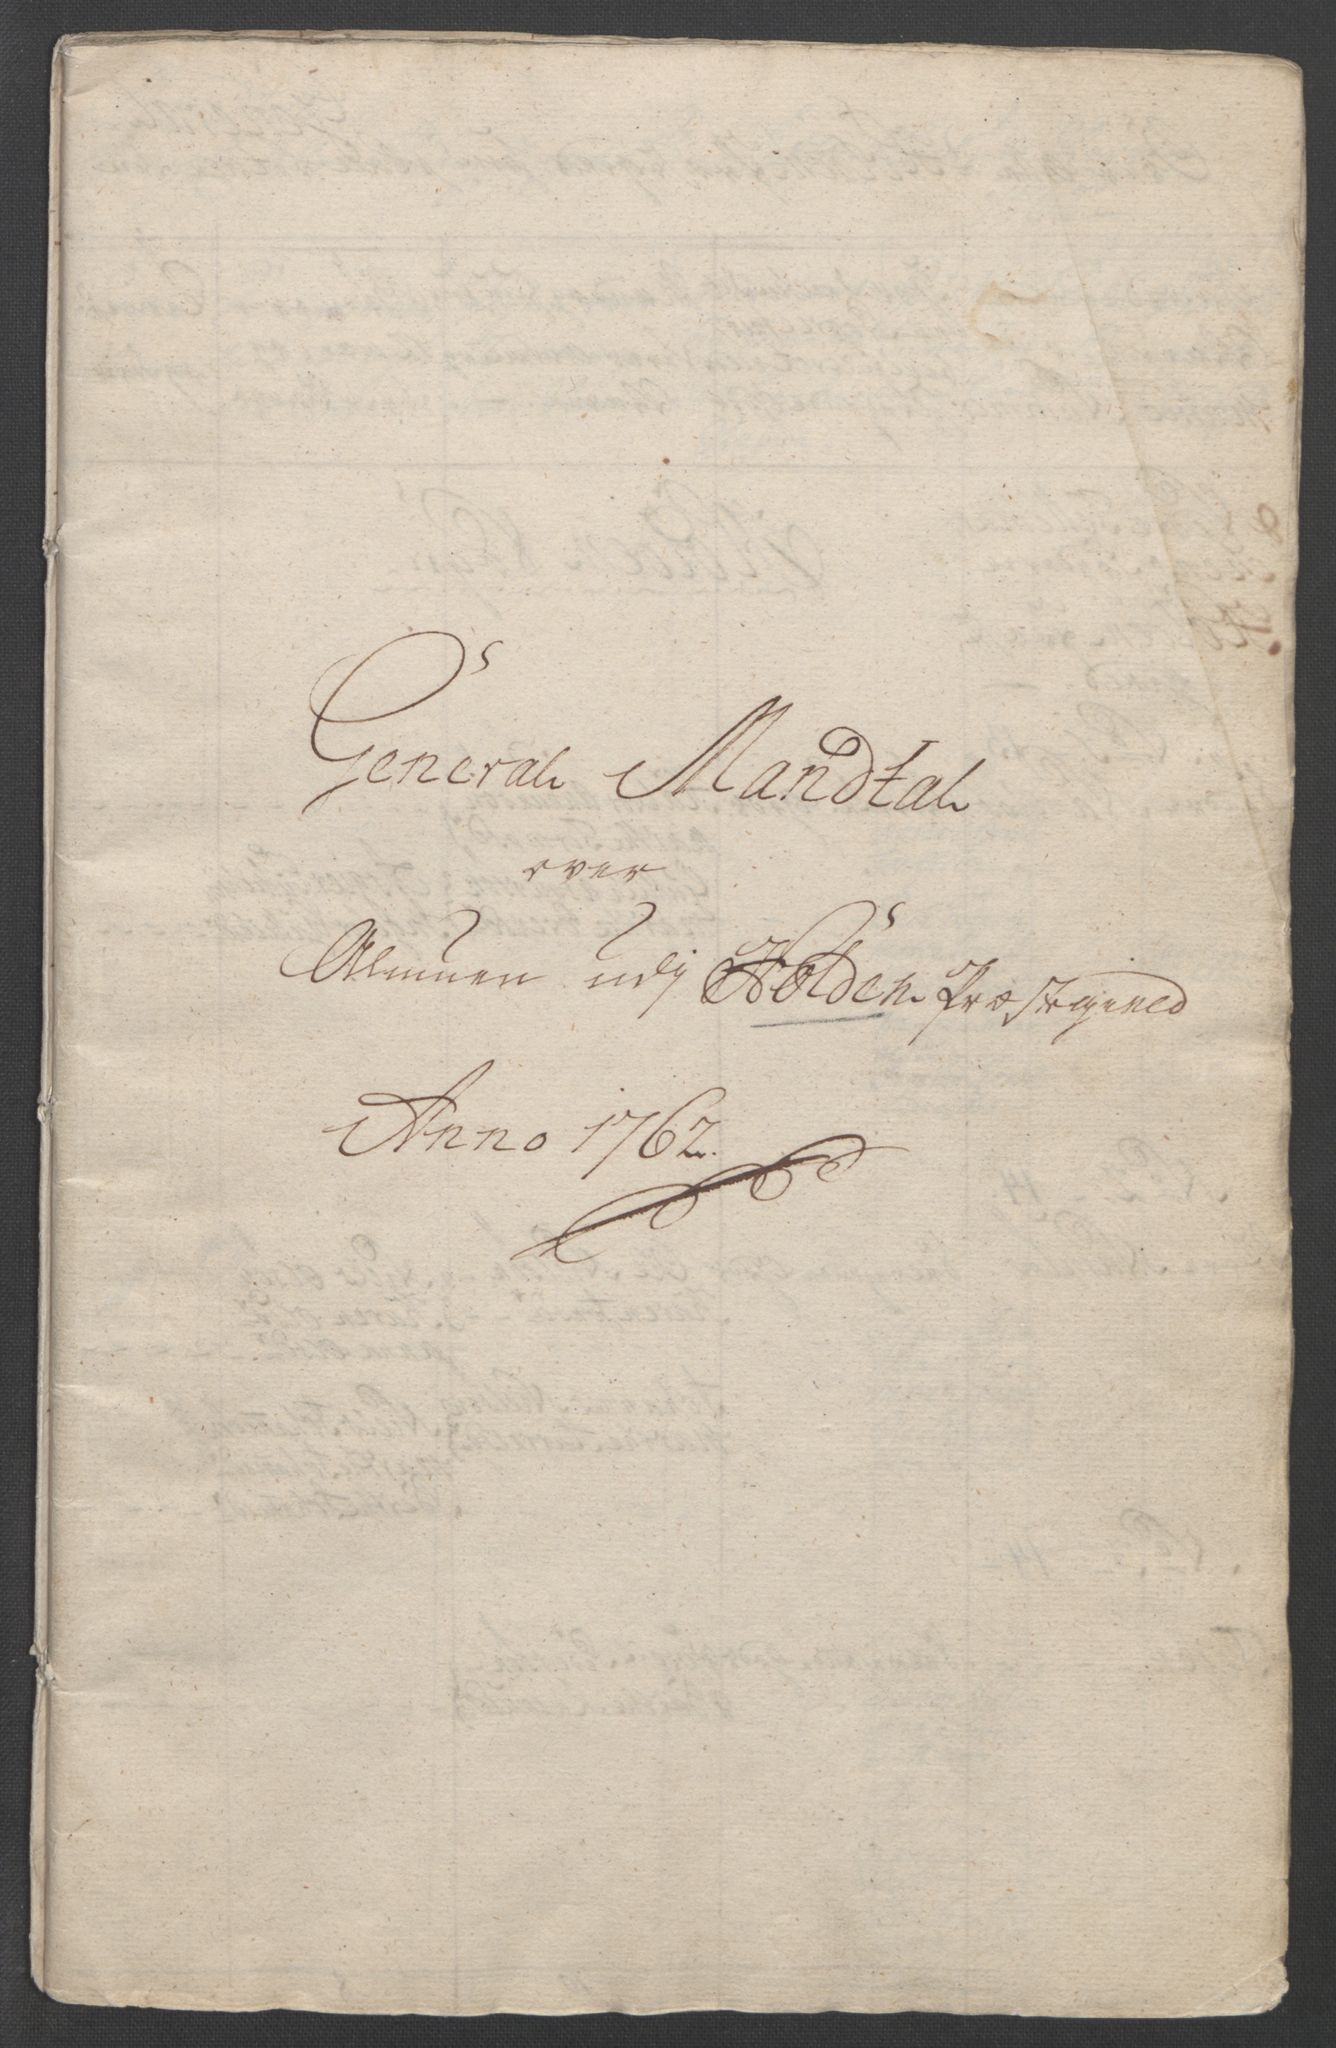 General Mandtal
over
Almuen udj Holden Præstegield
Anno 1762.